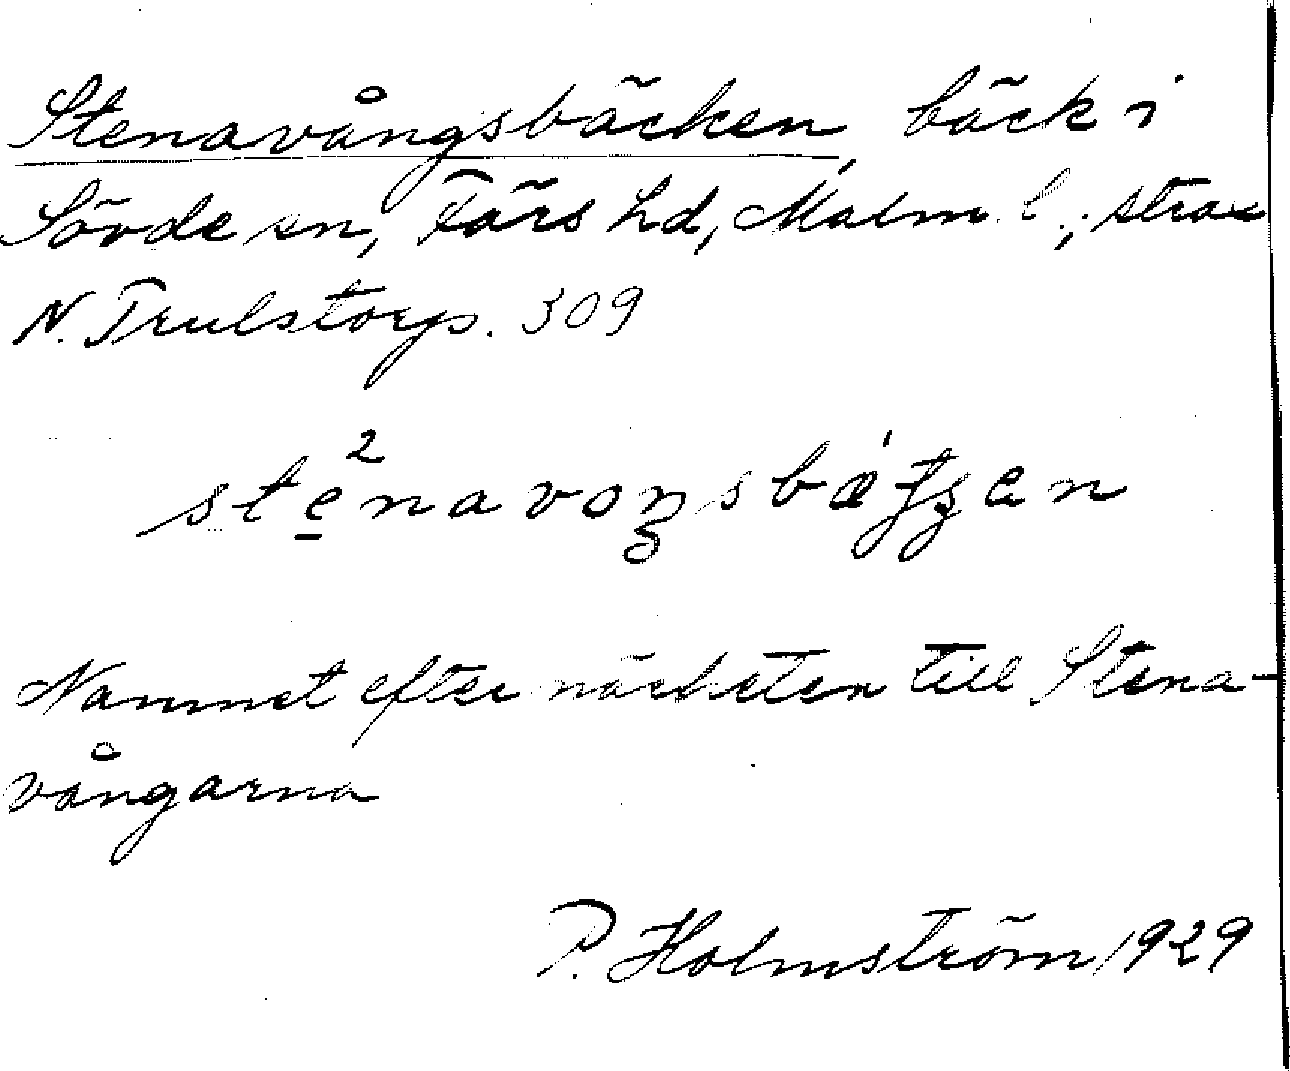 Stenavångsbäcken, bäck i
Sövde sn, Färs hd, Malm. l.; strax
N. Trulstorp. 309
Namnet efter närheten till Stena-
vångarna
P. Holmström 1929